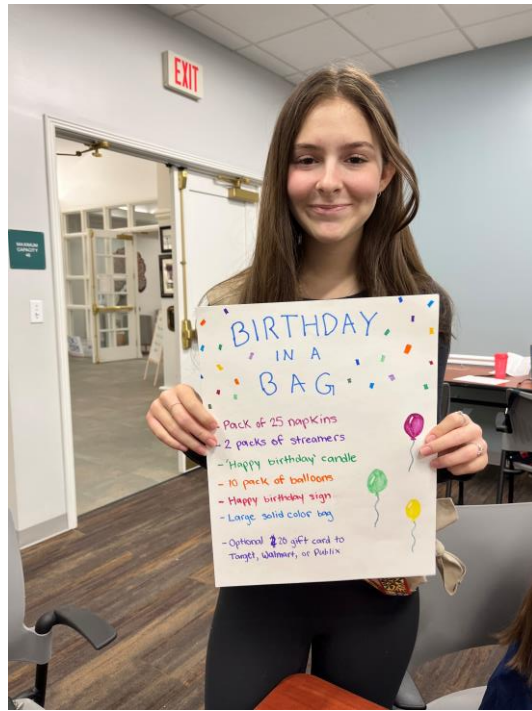 EXIT
MAXIMUM
CAPACITY
BIRTHDAY
IN A
BAG
- Pack of 25 napkins
- 2 packs of streamers
- 'Happy birthday' candle
- 10 pack of balloons
- Happy birthday sign
- Large solid color bag
- Optional $20 gift card to
Target, Walmart, or Publix